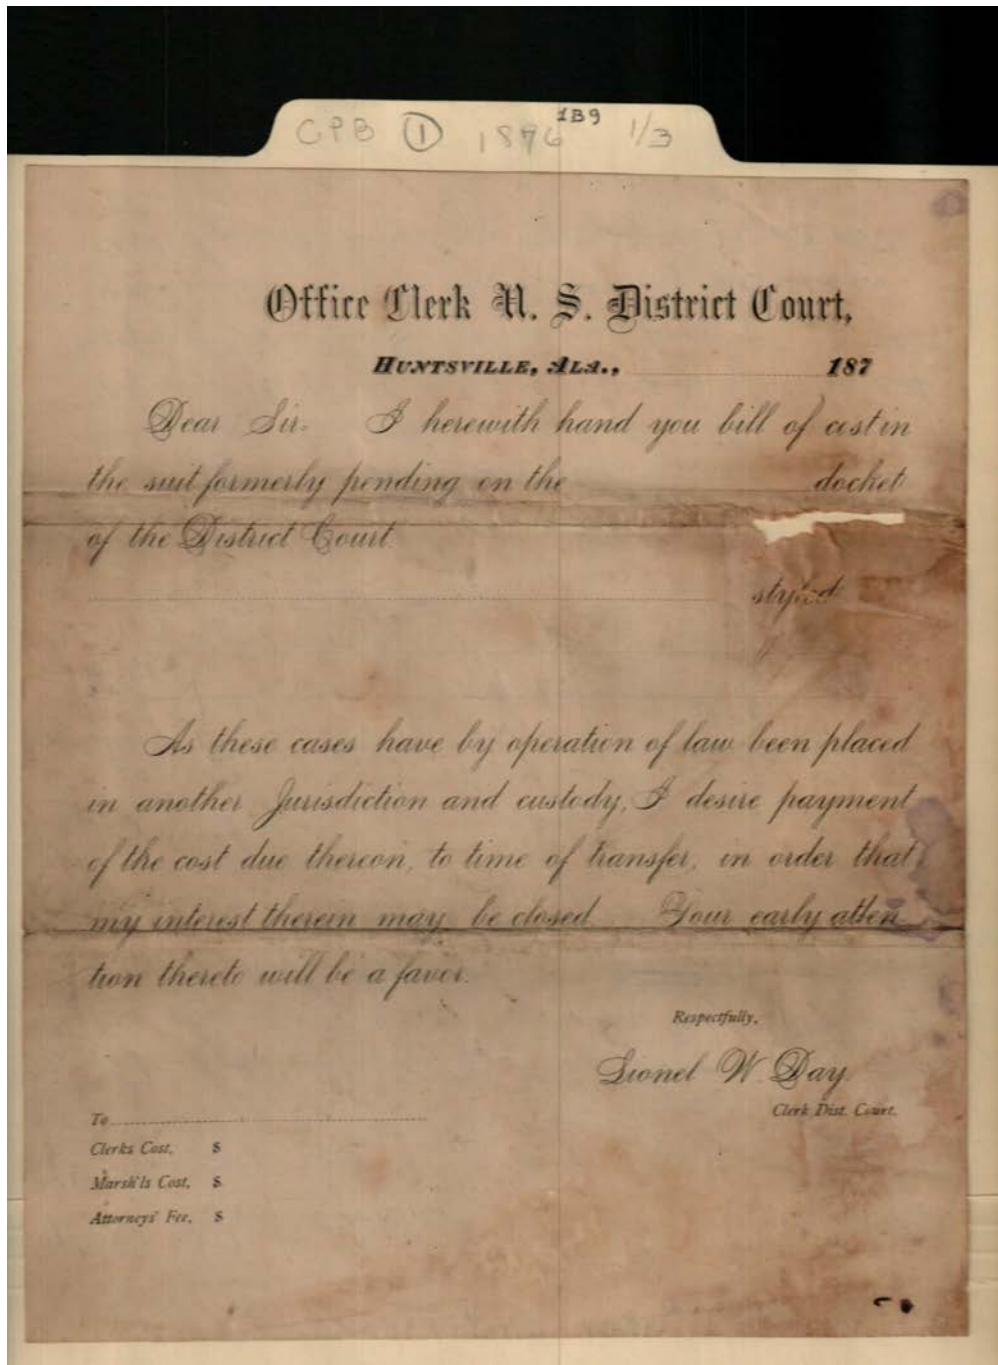 CPB 1 1876 1B9 1/3
Office Clerk U. S. District Court,
HUNTSVILLE, ALA., 187
Dear Sir. I herewith hand you bill of cost in
the suit formerly pending on the docket
of the District Court
styled
As these cases have by operation of law been placed
in another Jurisdiction and custody, I desire payment
of the cost due thereon, to time of transfer, in order that
my interest therein may be closed. Your early atten
tion thereto will be a favor.
Respectfully,
Lionel W. Day
Clerk Dist. Court.
To
Clerks Cost, $
Marsh'ls Cost, $
Attorneys' Fee, $